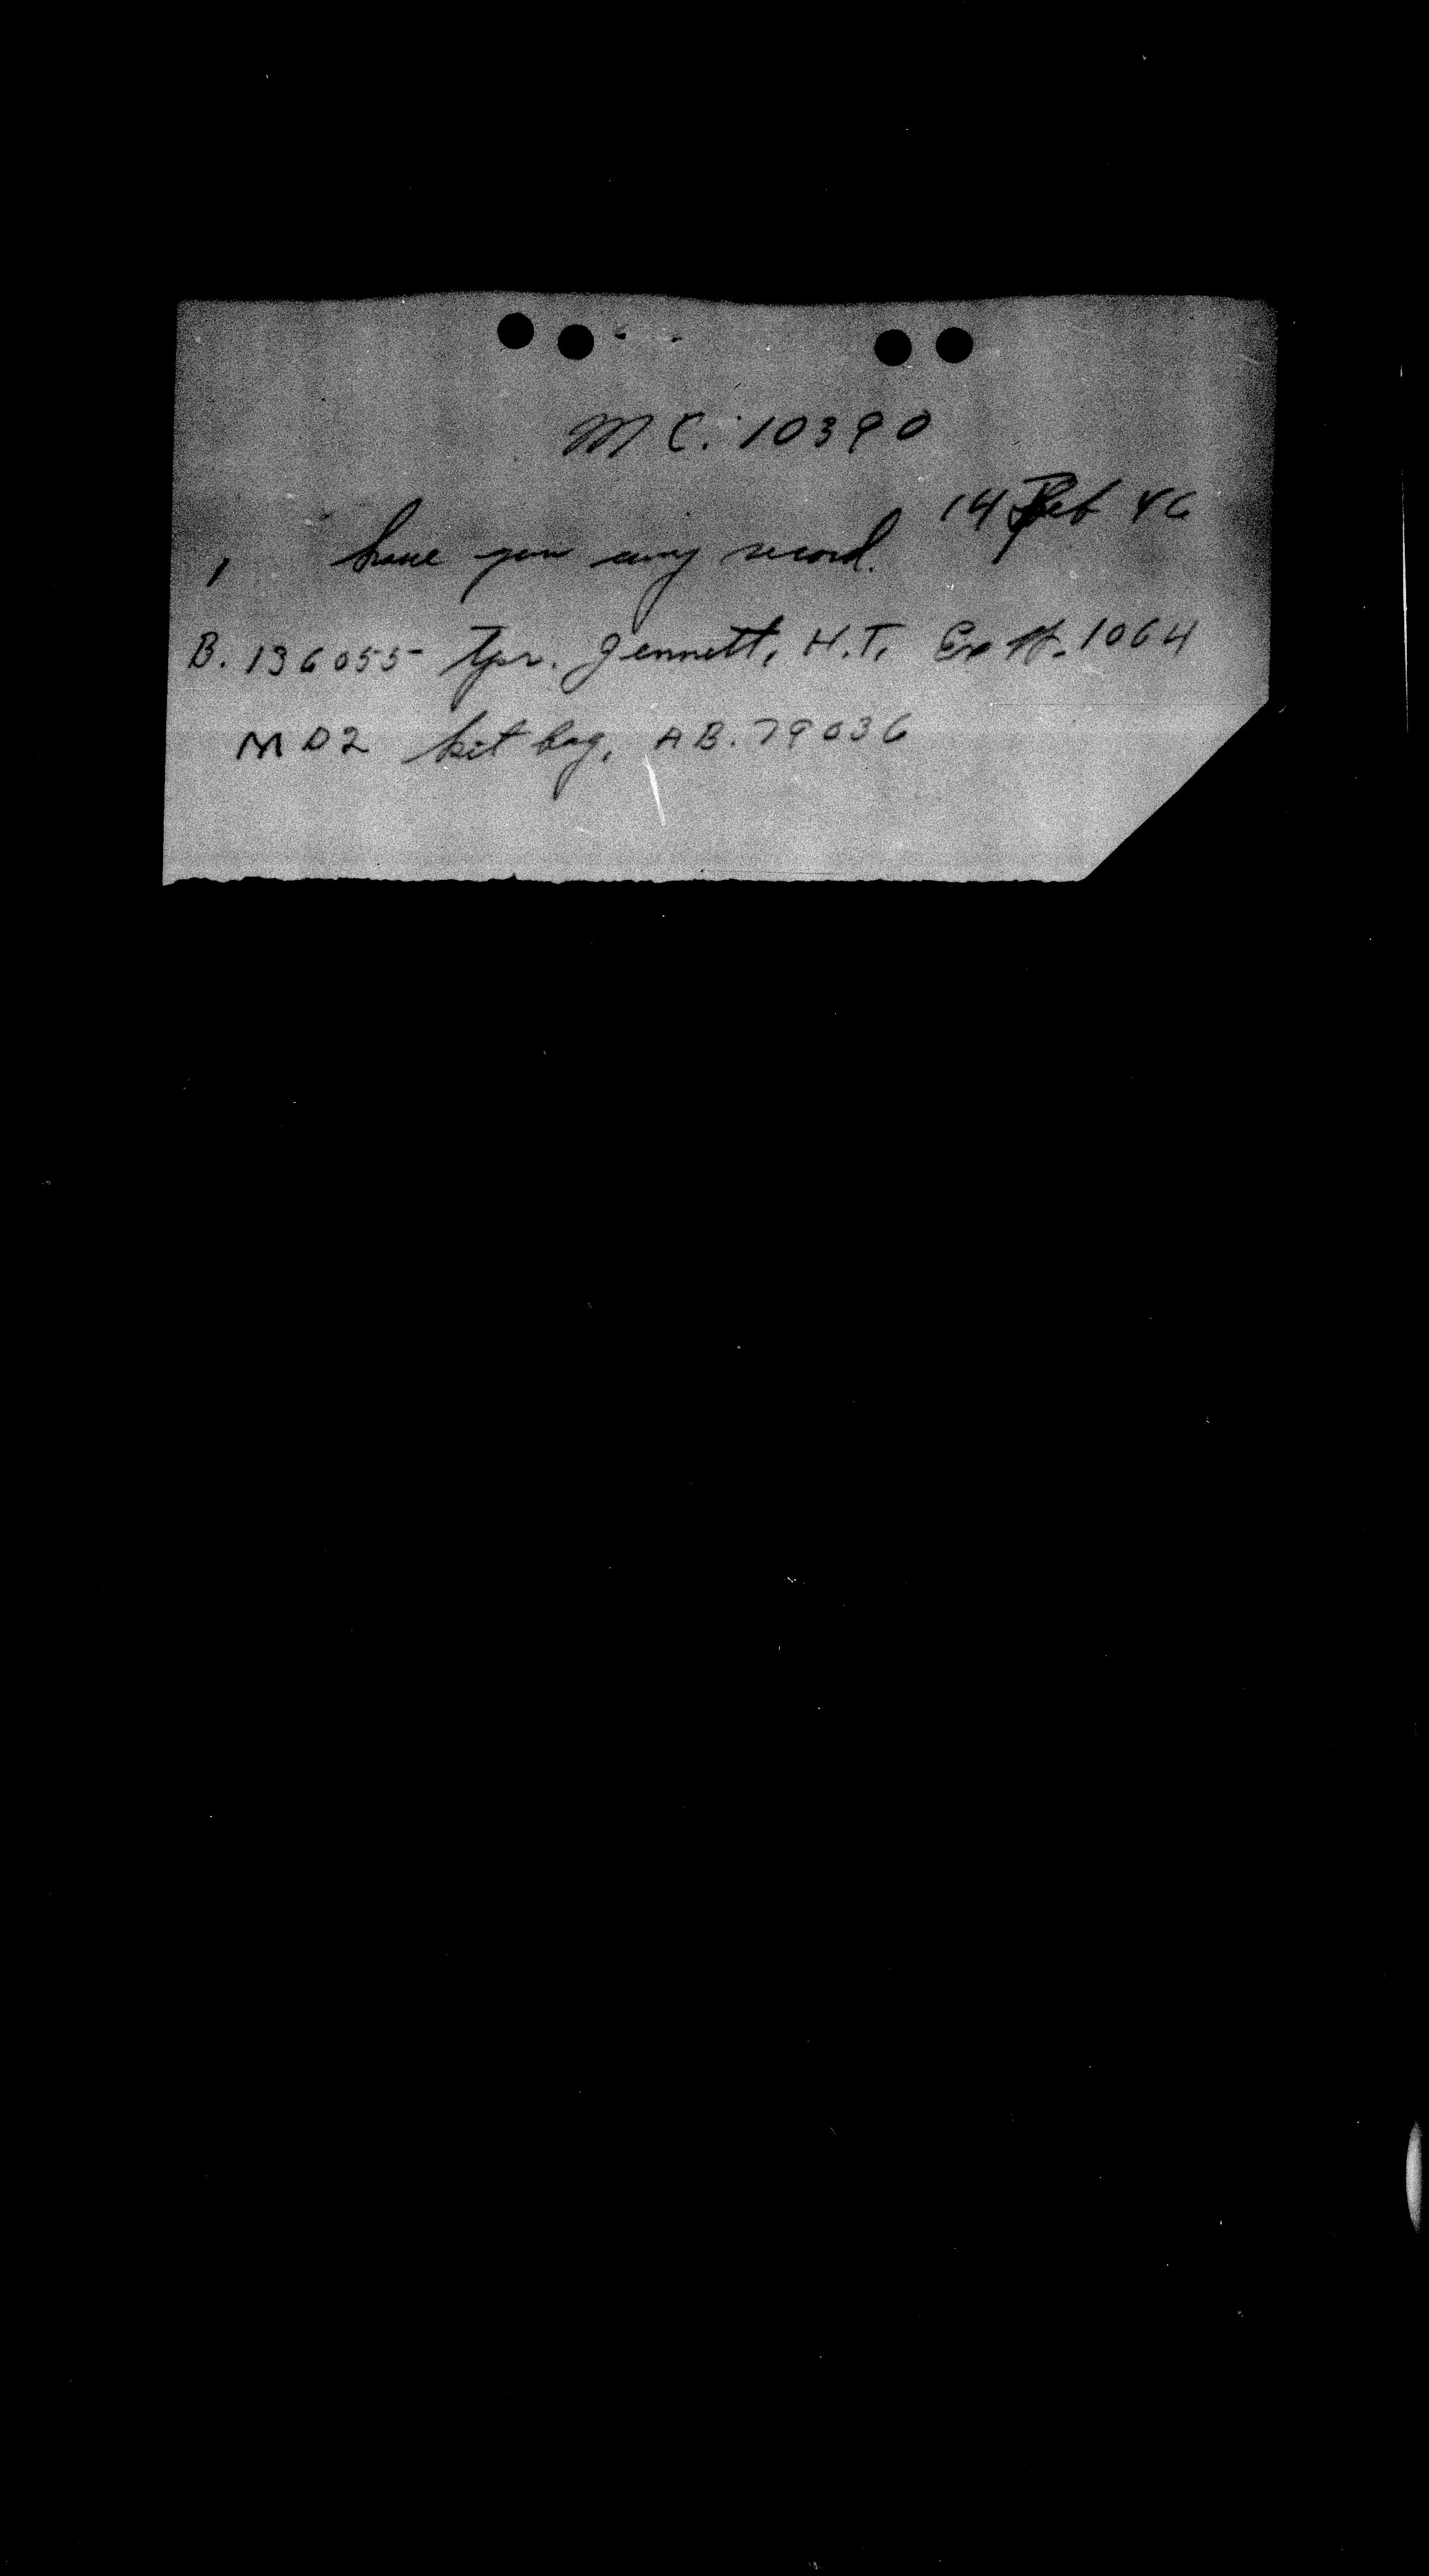 M C. 10390
14 Feb 46
1 have you any record.
B. 136055 Tpr. Jennett, H.T. 1064
M D 2 kit bag, A B. 79036